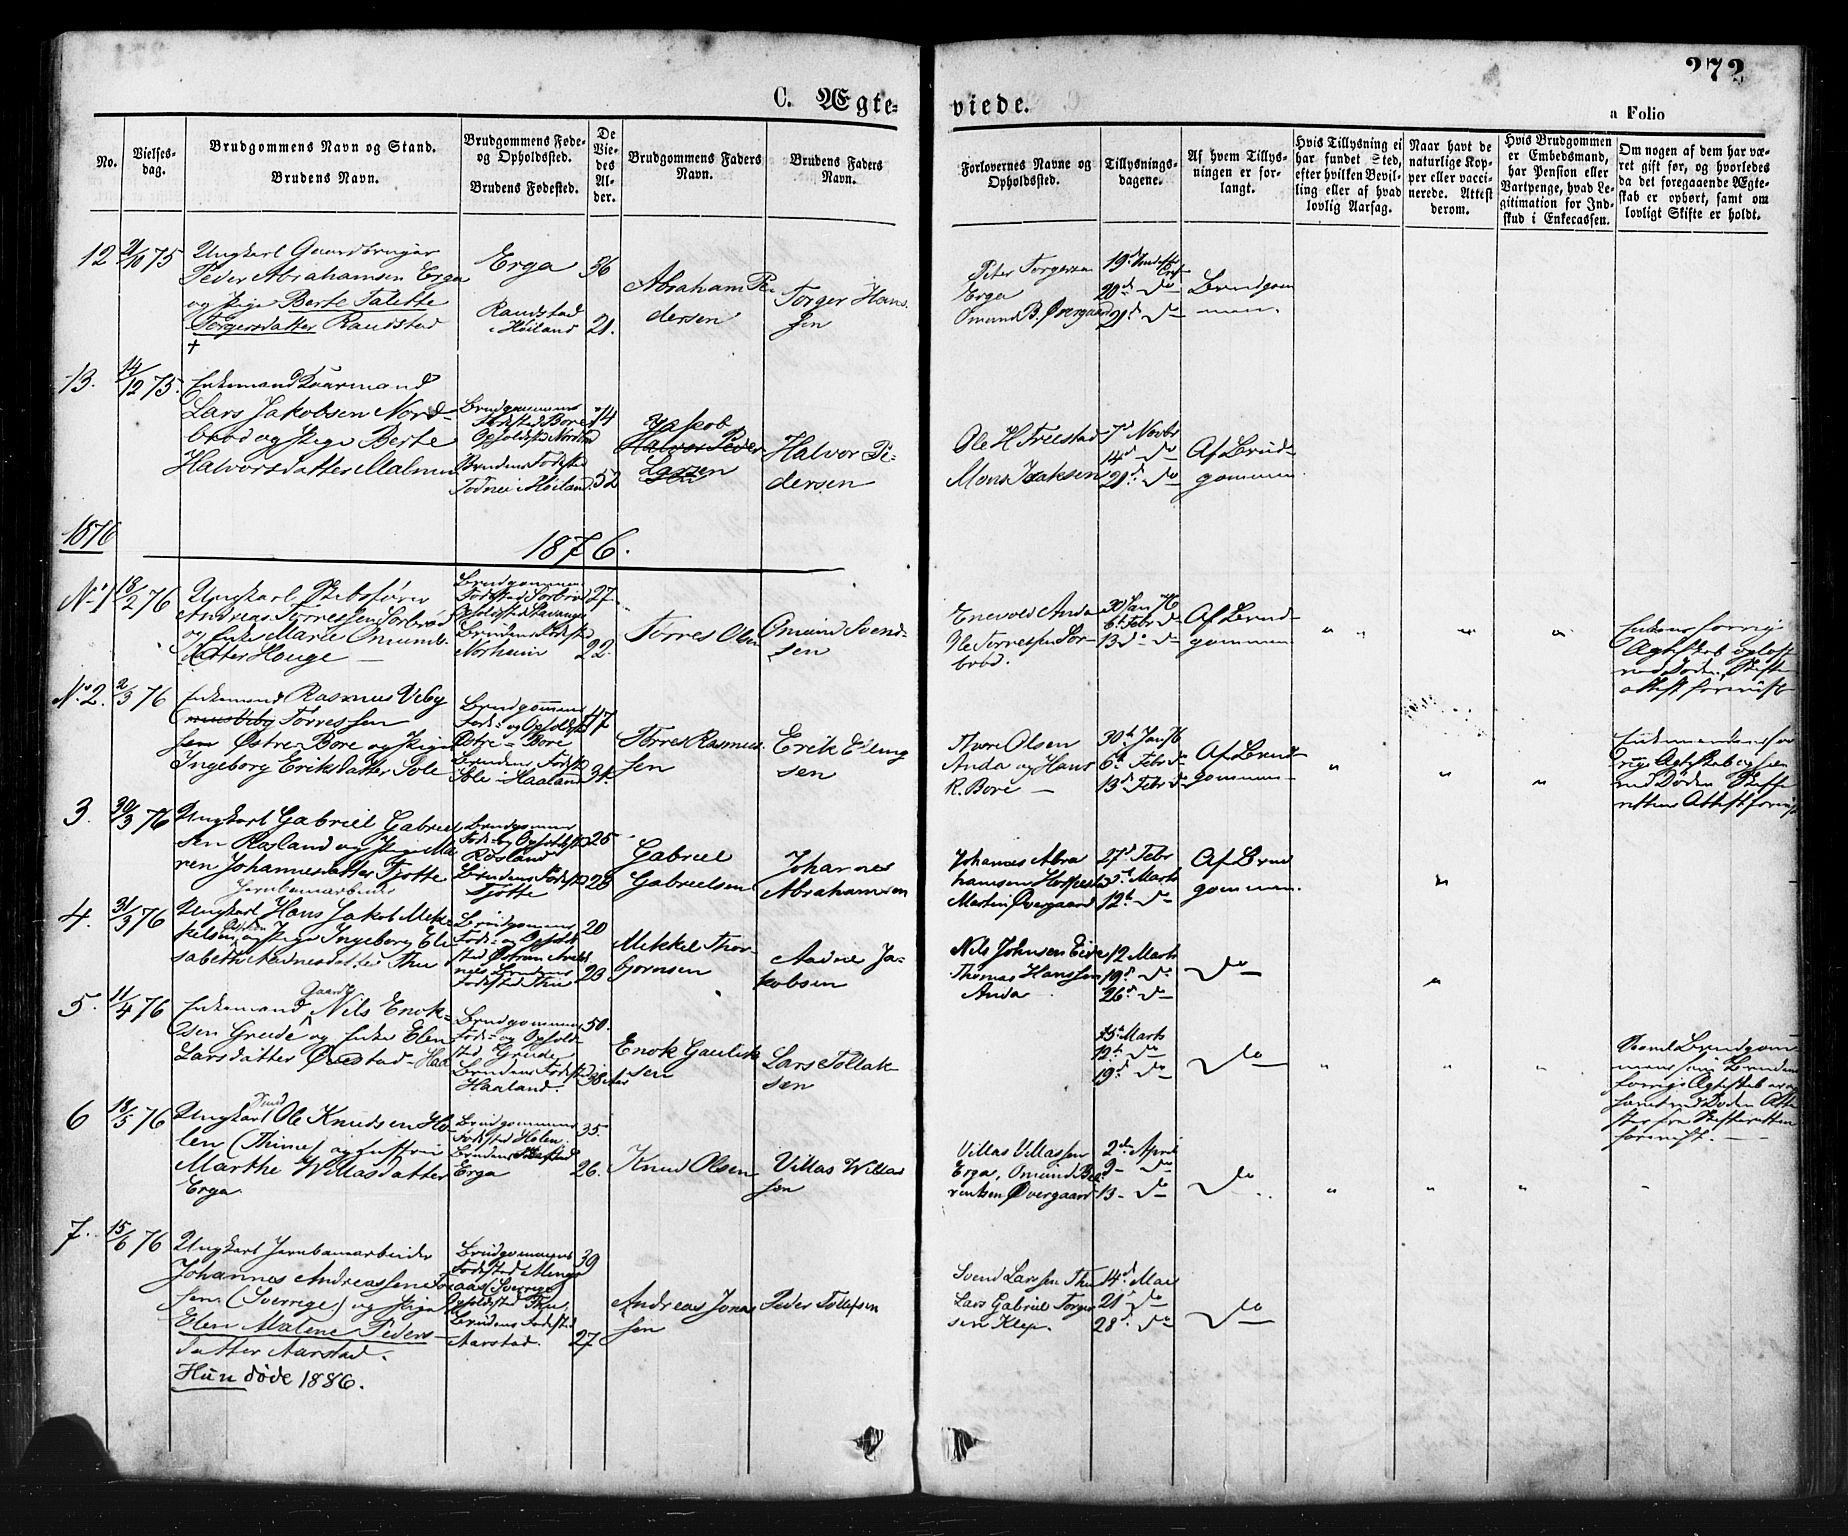 272
C. Ægte-
viede.
a Folio
No.
Vielses-
dag.
Brudgommens Navn og Stand.
Brudens Navn.
Brudgommens Føde-
og Opholdssted.
Brudens Fødested.
De
Vie-
des
Al-
der.
Brudgommens Faders
Navn.
Brudens Faders
Navn.
Forlovernes Navne og
Opholdssted.
Tillysnings-
dagene.
Af hvem Tillys-
ningen er for-
langt.
Hvis Tillysning ei
har fundet Sted,
efter hvilken Bevil-
ling eller af hvad
lovlig Aarsag.
Naar havt de
naturlige Kop-
per eller vacci-
nerede. Attest
derom.
Hvis Brudgommen
er Embedsmand,
har Pension eller
Vartpenge, hvad Le-
gitimation for Ind-
skud i Enkecassen.
Om nogen af dem har væ-
ret gift før, og hvorledes
da det foregaaende Ægte-
skab er ophørt, samt om
lovligt Skifte er holdt.
12 21/10 75
Ungkarl Gaardbruger
Peder Abrahamsen Erga
og Pige Berte Talette
Torgersdatter Raudstad
+
Erga
Raudstad
i Høiland
36
21.
Abraham Pe
dersen
Torger Han
sen
Peter Torgersen
Erga
Omund B. Øvergaard
20d Do
21d Do
Brudgom
men.
13. 14/12 75.
Enkemand Kaarmand
Lars Jakobsen Nord-
brød og Pige Berte
Halvorsdatter Malmin
Brudgommens
Fødested Bore
Brudens Fødested
Todnei Høiland
74
52
Jakob
Halvor Peder
Larsen
Halvor Pe-
dersen
Ole H Friestad
Mons Isaksen
7d Novbr
14d Do
21d Do
Af Brud-
gommen
1876
1876.
No 1 18/2 76
Ungkarl Skibsfører
Andreas Torressen Sorbrød
og Enke Marie Omunds
datter Houge —
Brudgommens
Fødested Sorbrød
Opholdssted Stavanger
Brudens Fødested
Norheim
27.
22.
Torres Olsen
Omund Svend-
sen
Enevold Anda
Ole Torressen Sor-
brød.
30 Jan 76
6t Febr Do
13 Do
Af Brud-
gommen
Enkens forrige
Ægteskab opløst
ved Døden. Skifte
attest forevist
No 2. 2/3 76
Enkemand Rasmus Viby
Torressen
sen Østre Bore og Pige
Ingeborg Eriksdatter Sole
Brudgommens
Føde- og Opholdssted
Østre Bore
Brudens Fødested
Sole i Haaland
47
31.
Torres Rasmus
sen
Erik Elling
sen
Thore Olsen
Anda og Hans
R. Bore —
30te Jan 76
6te Febr do
13d Febr do
Af Brud-
gommen
Enkemandens for
rige Ægteskab
ved Døden. Skifte
rettens Attest forevist
3. 30/3 76
Ungkarl Gabriel Gabriel
sen Røsland og Pige Ma
ren Johannesdatter Tjøtte
Brudgommens
Føde- og Opholdssted
Røsland
Brudens Fødested
Tjøtte
25
28
Gabriel
Gabrielsen
Johannes
Abrahamsen
Johannes Abra
hamsen
Martin Øvergaard
27d Febr
5d Marts
12te Do
Af Brud
gommen.
4. 31/3 76
Jernbanearbeider
Ungkarl Hans Jakob Mek-
kelsen og Pige Ingeborg Eli
sabeth Aadnesdatter Thu
Brudgommens
Føde- og Opholds
Brudens
Fødested Thu
20
23
Mekkel Thor-
bjørnsen
Aadne Ja-
kobsen
Nils Johnsen Eide
Thomas Hanssen
Anda
12 Marts
19d Do
26d Do
Do
5. 11/4 76
Gaard
Enkemand Nils Enok-
sen Grude og Enke Elen
Larsdatter Øvestad Haa
Brudgommens
Føde- og Ophold-
sted Grude
Brudens Fødested
Haaland.
50.
38
Enok Gaulik
sen
Lars Tollak-
sen
5te Marts
12te Do
19d Do
Do
Saavel Brudgom-
mens som Brudens
forrige Ægteskab
hævet ved Døden Atte
ster fra Skifteretten
forevist. —
6 18/5 76
Ungkarl Ole Knudsen Ho-
len (Thime) og Enke
Marthe Willasdatter
Erga.
Brudgommens
Fødested Holen.
Brudens Fødested
Erga
35.
26.
Knud Olsen
Villas Willas
sen
Villas Villassen
Erga, Omund Be-
rentsen Øvergaard
2den April
9 — Do
13 — Do
Do
7. 15/6 76
Ungkarl Jernbanearbeider
Johannes Andreassen
sen (Sverrige) og Pige
Elen Malene Peders-
datter Aarstad.
Hun døde 1886.
Brudgommens
Fødested
(Sverrige)
Opholdssted Thu
Brudens Fødested
Aarstad.
39
27
Andreas Jonas
sen
Peder Tollefsen
Svend Larssen Thu
Lars Gabriel Torger
sen Klep.
14d Mai
21d Do
28d Do
Do